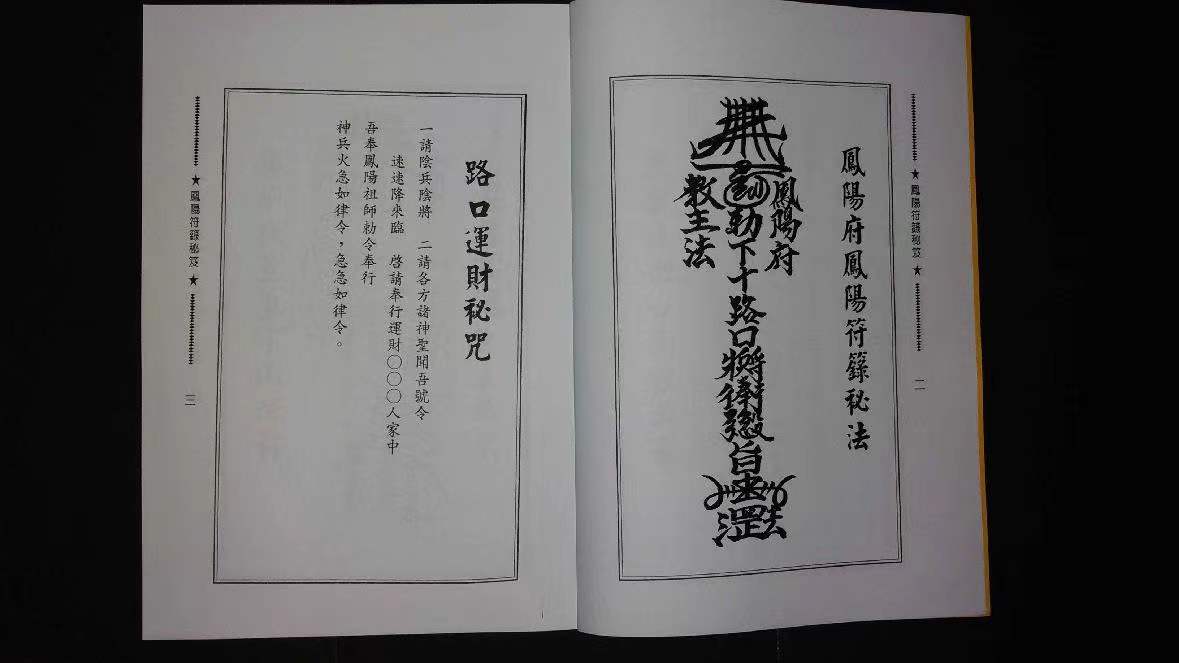 鳳陽符籙秘笈
二
鳳陽府鳳陽符籙秘法
鳳陽府
勅下十路口
教主法
路口運財秘咒
一請陰兵陰將　二請各方諸神聖聞吾號令
速速降來臨　啓請奉行運財〇〇〇人家中
吾奉鳳陽祖師勅令奉行
神兵火急如律令，急急如律令。
鳳陽符籙秘笈
三